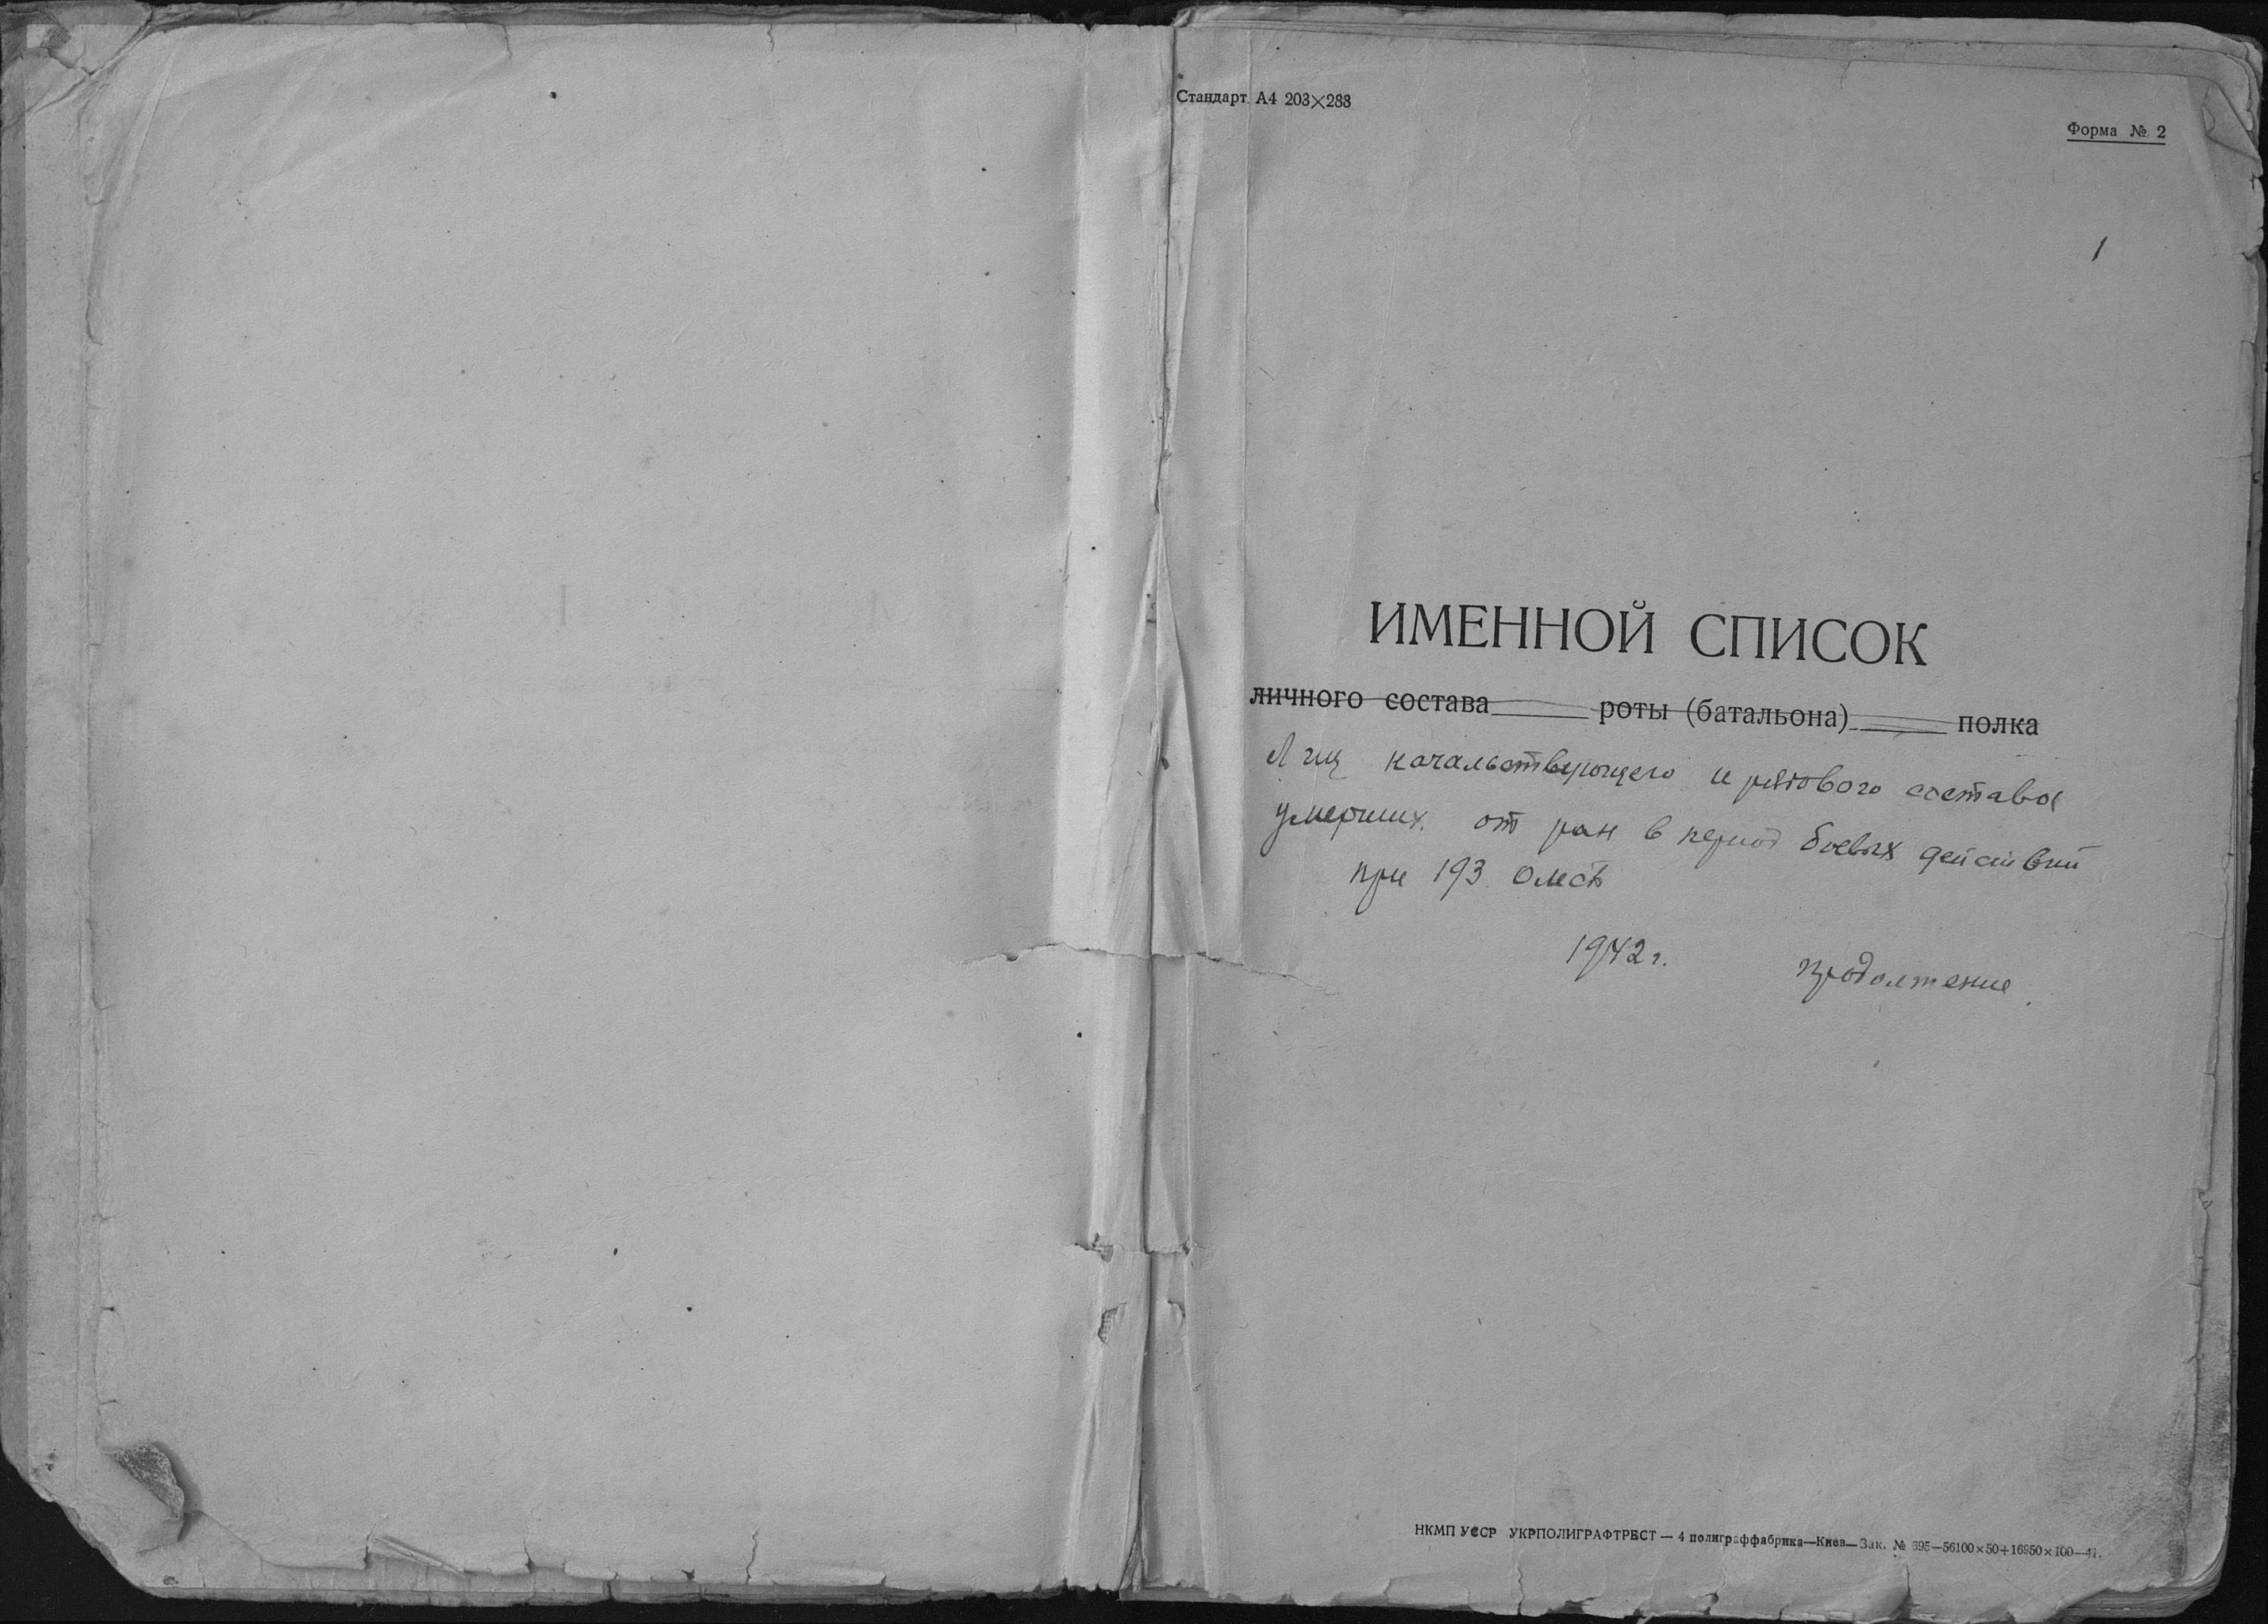 Стандарт А4 203×288
Форма № 2
1
ИМЕННОЙ СПИСОК
личного состава роты (батальона) полка
Лиц начальствующего и рядового состава
умерших от ран в период боевых действий
при 193 ОМСБ
1942 г. продолжение
НКМП УССР УКРПОЛИГРАФТРЕСТ — 4 полиграффабрика—Киев—Зак. № 695—56100×50+16950×100—41.